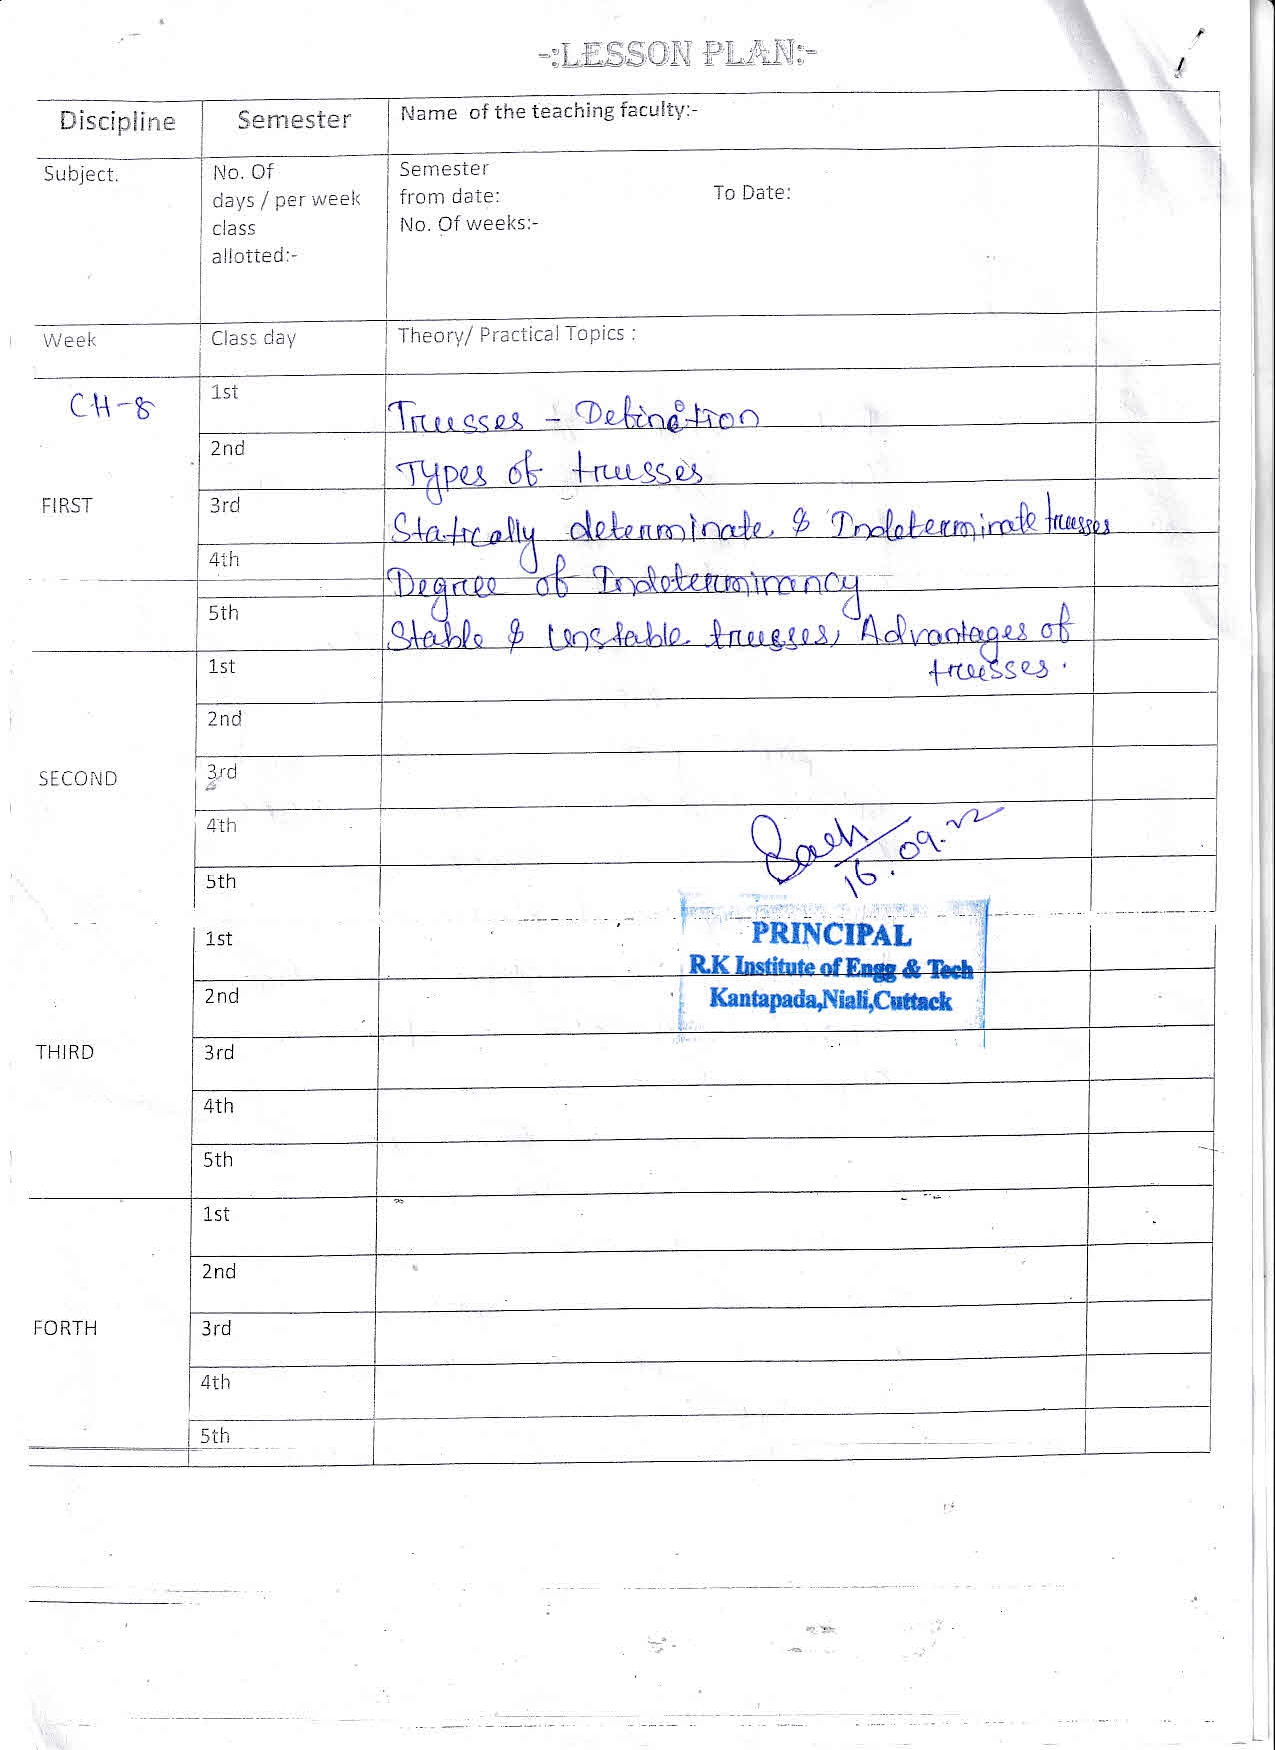 -:LESSON PLAN:-
Discipline Semester Name of the teaching faculty:-
Subject. No. Of Semester
days / per week from date: To Date:
class No. Of weeks:-
allotted:-
Week Class day Theory/ Practical Topics :
CH-8 1st Trusses - Definition
2nd Types of trusses
FIRST 3rd Statically determinate & Indeterminate trusses
4th Degree of Indeterminancy
5th Stable & Unstable trusses, Advantages of
1st trusses.
2nd
SECOND 3rd
4th
16.09.22
5th
1st PRINCIPAL
R.K Institute of Engg & Tech
2nd Kantapada,Niali,Cuttack
THIRD 3rd
4th
5th
1st
2nd
FORTH 3rd
4th
5th